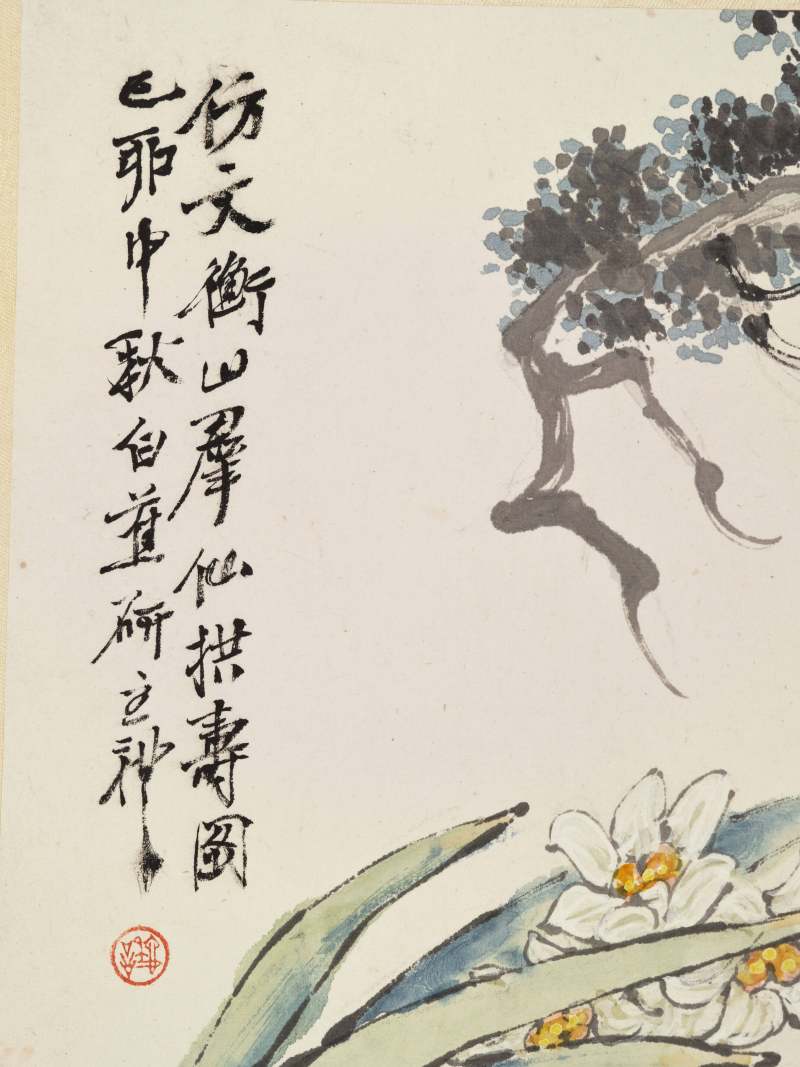 仿文衡山羣仙拱壽圖
己卯中秋白蕉研主神